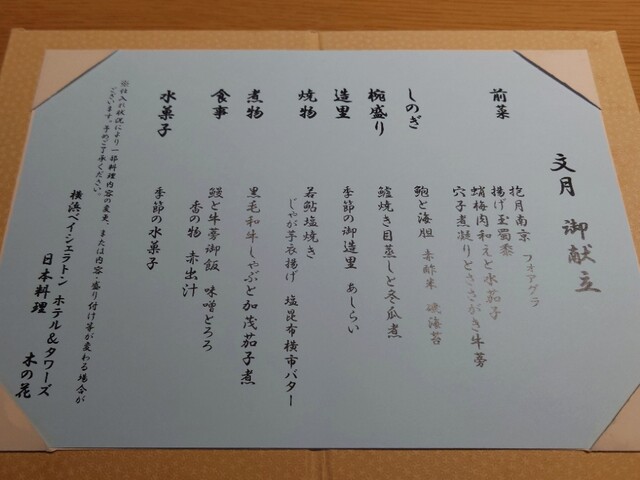 文月 御献立
前菜
抱月南京 フォアグラ
揚げ玉蜀黍
蛸梅肉和えと水茄子
穴子煮凝りとささがき牛蒡
しのぎ
鮑と海胆 赤酢米 磯海苔
椀盛り
鱸焼き目蒸しと冬瓜煮
造里
季節の御造里 あしらい
焼物
若鮎塩焼き
じゃが芋衣揚げ 塩昆布横市バター
煮物
黒毛和牛しゃぶと加茂茄子煮
食事
鰻と牛蒡御飯 味噌とろろ
香の物 赤出汁
水菓子
季節の水菓子
※仕入れ状況により一部料理内容の変更、または内容・盛り付け等が変わる場合が
ございます。予めご了承ください。
横浜ベイシェラトン ホテル&タワーズ
日本料理 木の花